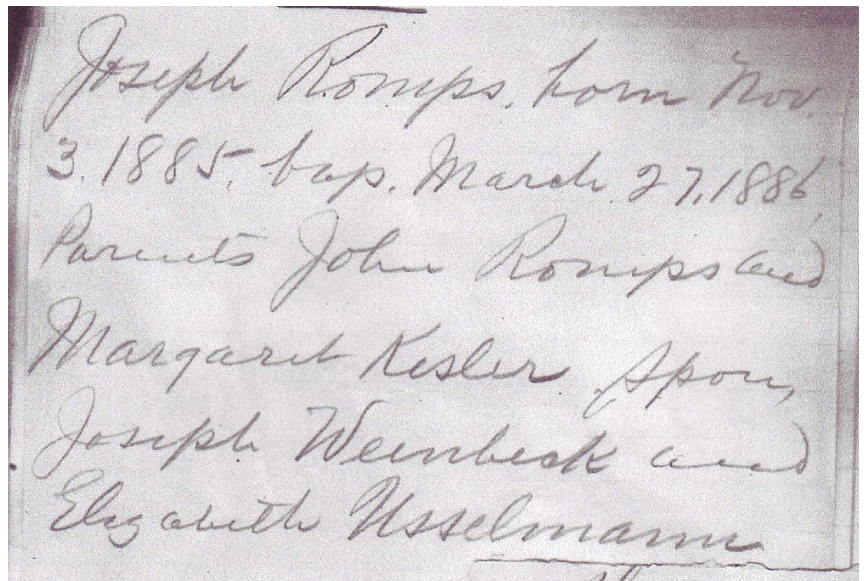 Joseph Romps. born Nov.
3. 1885. bap. March 27, 1886,
Parents John Romps and
Margaret Kesler Spon,
Joseph Weinbeck and
Elizabeth Usselmann